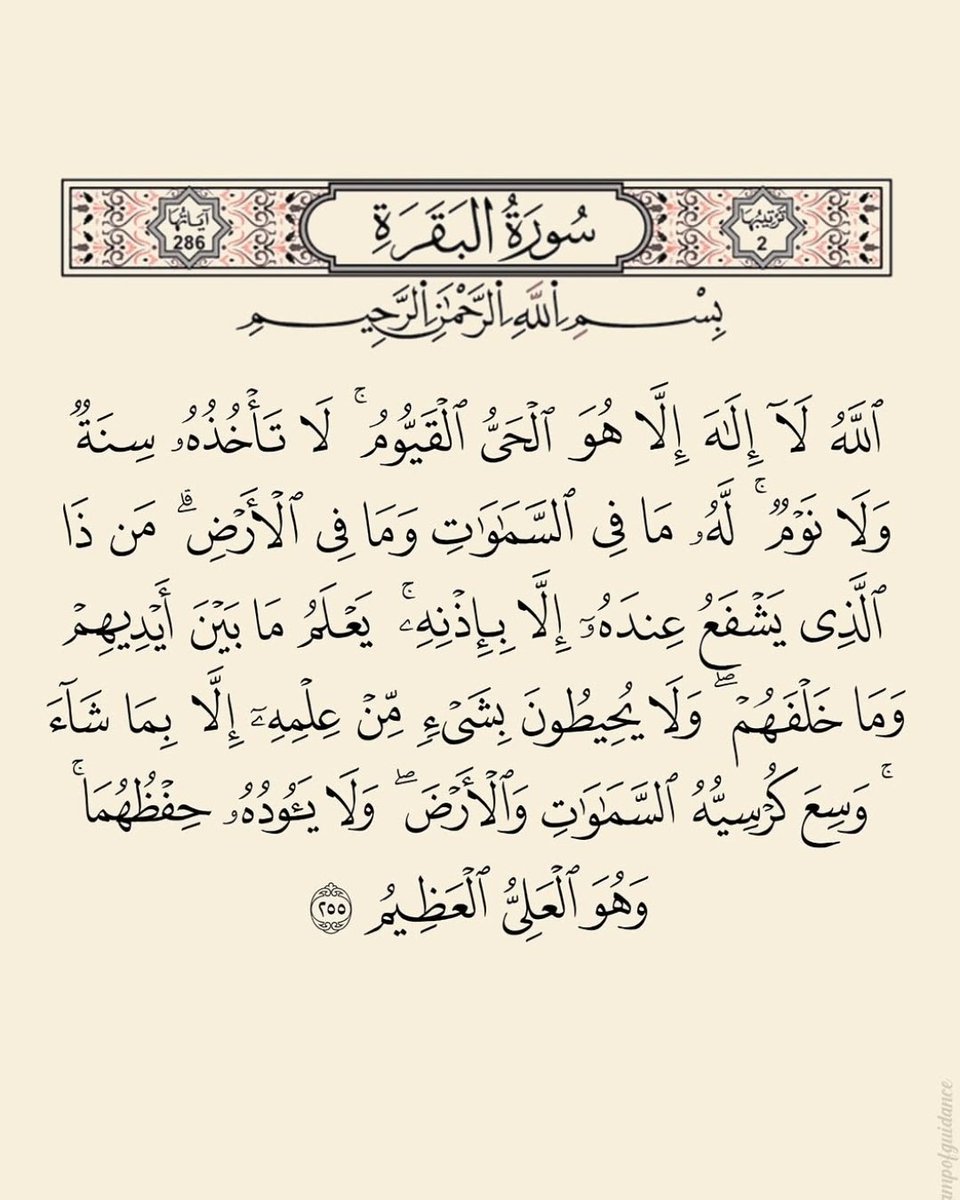 ترتيبها
2
سُورَةُ البَقَرَةِ
آياتها
286
بِسْمِ اللَّهِ الرَّحْمَٰنِ الرَّحِيمِ
ٱللَّهُ لَآ إِلَٰهَ إِلَّا هُوَ ٱلْحَىُّ ٱلْقَيُّومُ ۚ لَا تَأْخُذُهُۥ سِنَةٌۭ
وَلَا نَوْمٌۭ ۚ لَّهُۥ مَا فِى ٱلسَّمَٰوَٰتِ وَمَا فِى ٱلْأَرْضِ ۗ مَن ذَا
ٱلَّذِى يَشْفَعُ عِندَهُۥٓ إِلَّا بِإِذْنِهِۦ ۚ يَعْلَمُ مَا بَيْنَ أَيْدِيهِمْ
وَمَا خَلْفَهُمْ ۖ وَلَا يُحِيطُونَ بِشَىْءٍۢ مِّنْ عِلْمِهِۦٓ إِلَّا بِمَا شَآءَ
ۚ وَسِعَ كُرْسِيُّهُ ٱلسَّمَٰوَٰتِ وَٱلْأَرْضَ ۖ وَلَا يَـُٔودُهُۥ حِفْظُهُمَا ۚ
وَهُوَ ٱلْعَلِىُّ ٱلْعَظِيمُ ٢٥٥
ampofguidance